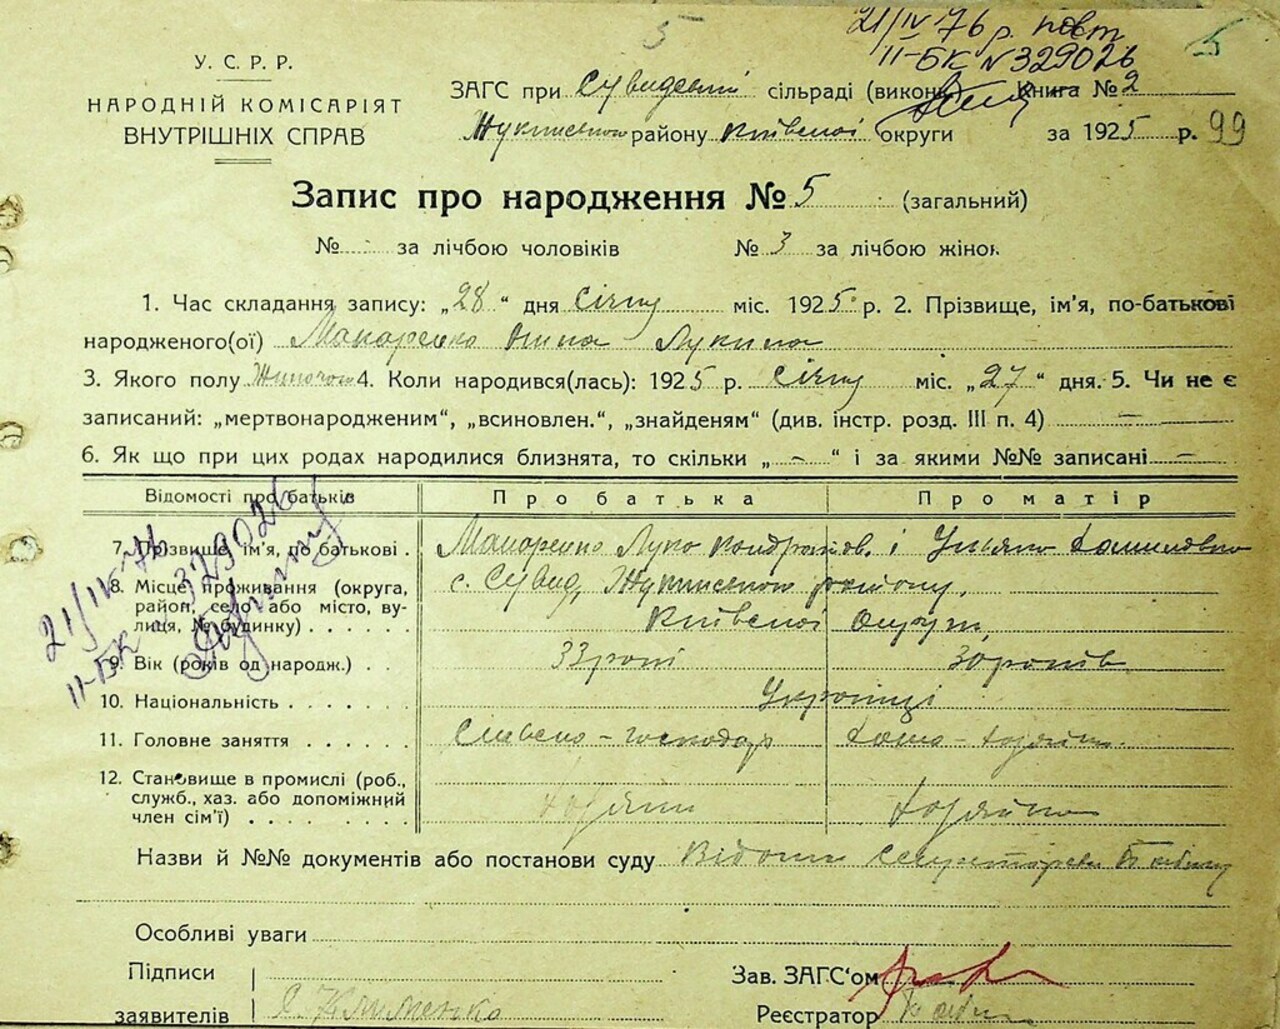 5
21/IV 76 р. повт
II-БК № 329026
5
У. С. Р. Р.
НАРОДНІЙ КОМІСАРІЯТ
ВНУТРІШНІХ СПРАВ
ЗАГС при Сувидській сільраді (виконк Книга № 2
Жукинського району Київської округи за 1925 р. 99
Запис про народження № 5 (загальний)
№ - за лічбою чоловіків № 3 за лічбою жінок
1. Час складання запису: „28“ дня Січня міс. 1925 р. 2. Прізвище, ім'я, по-батькові
народженого(ої) Макаренко Нина Лукина
3. Якого полу Жиночого 4. Коли народився(лась): 1925 р. Січня міс. „27“ дня. 5. Чи не є
записаний: „мертвонародженим“, „всиновлен.“, „знайденям“ (див. інстр. розд. III п. 4) —
6. Як що при цих родах народилися близнята, то скільки „ — “ і за якими №№ записані —
Відомості про батьків Про батька Про матір
7. Прізвище, ім'я, по батькові . Макаренко Лука Кондратов. і Ульяна
8. Місце проживання (округа, с. Сувид, Жукинського району,
район, село або місто, ву-
лиця, № будинку) . . . . . . Київської Округи,
9. Вік (років од народж.) . . 33 роки 30 років
10. Національність . . . . . . . Українці
11. Головне заняття . . . . . . Сильско-господар Домо-хозяйк.
12. Становище в промислі (роб.,
служб., хаз. або допоміжний хозяин хозяйка
член сім'ї) . . . . . . . .
21/IV-76
II-БК 329026
Назви й №№ документів або постанови суду Відом
Особливі уваги
Підписи Зав. ЗАГС'ом
заявителів Клименко Реєстратор